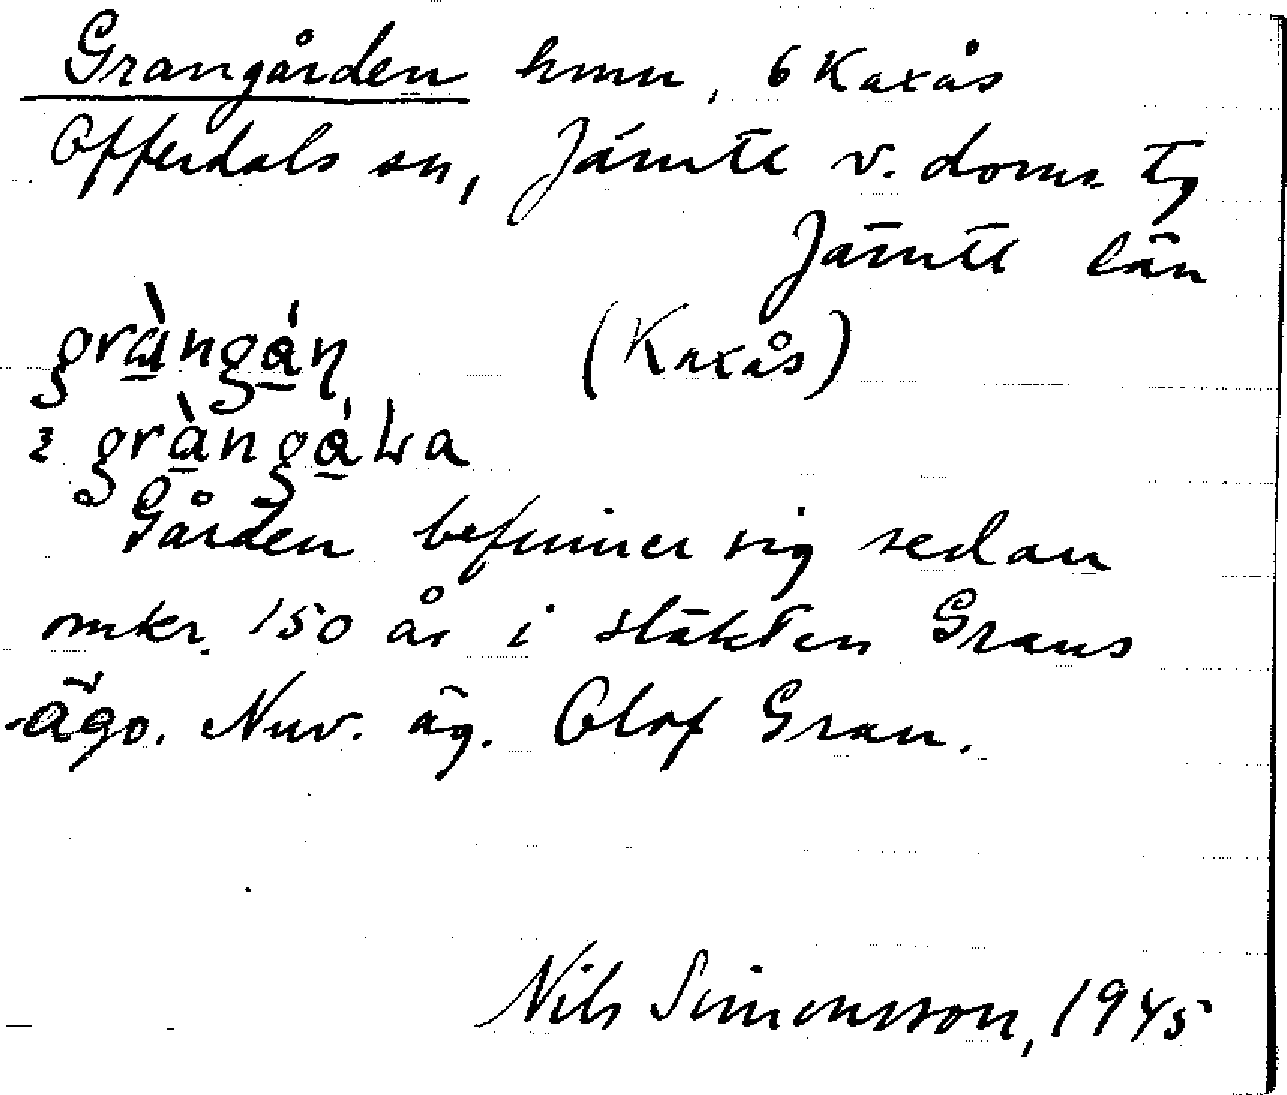 Grangården hmn, 6 Kaxås
Offerdals sn, Jämtl v. doms tg
Jämtl län
gràngáṇ (Kaxås)
i gràngáLa
Gården befinner sig sedan
omkr. 150 år i släkten Grans
ägo. Nuv. äg. Olof Gran.
Nils Simonsson, 1945